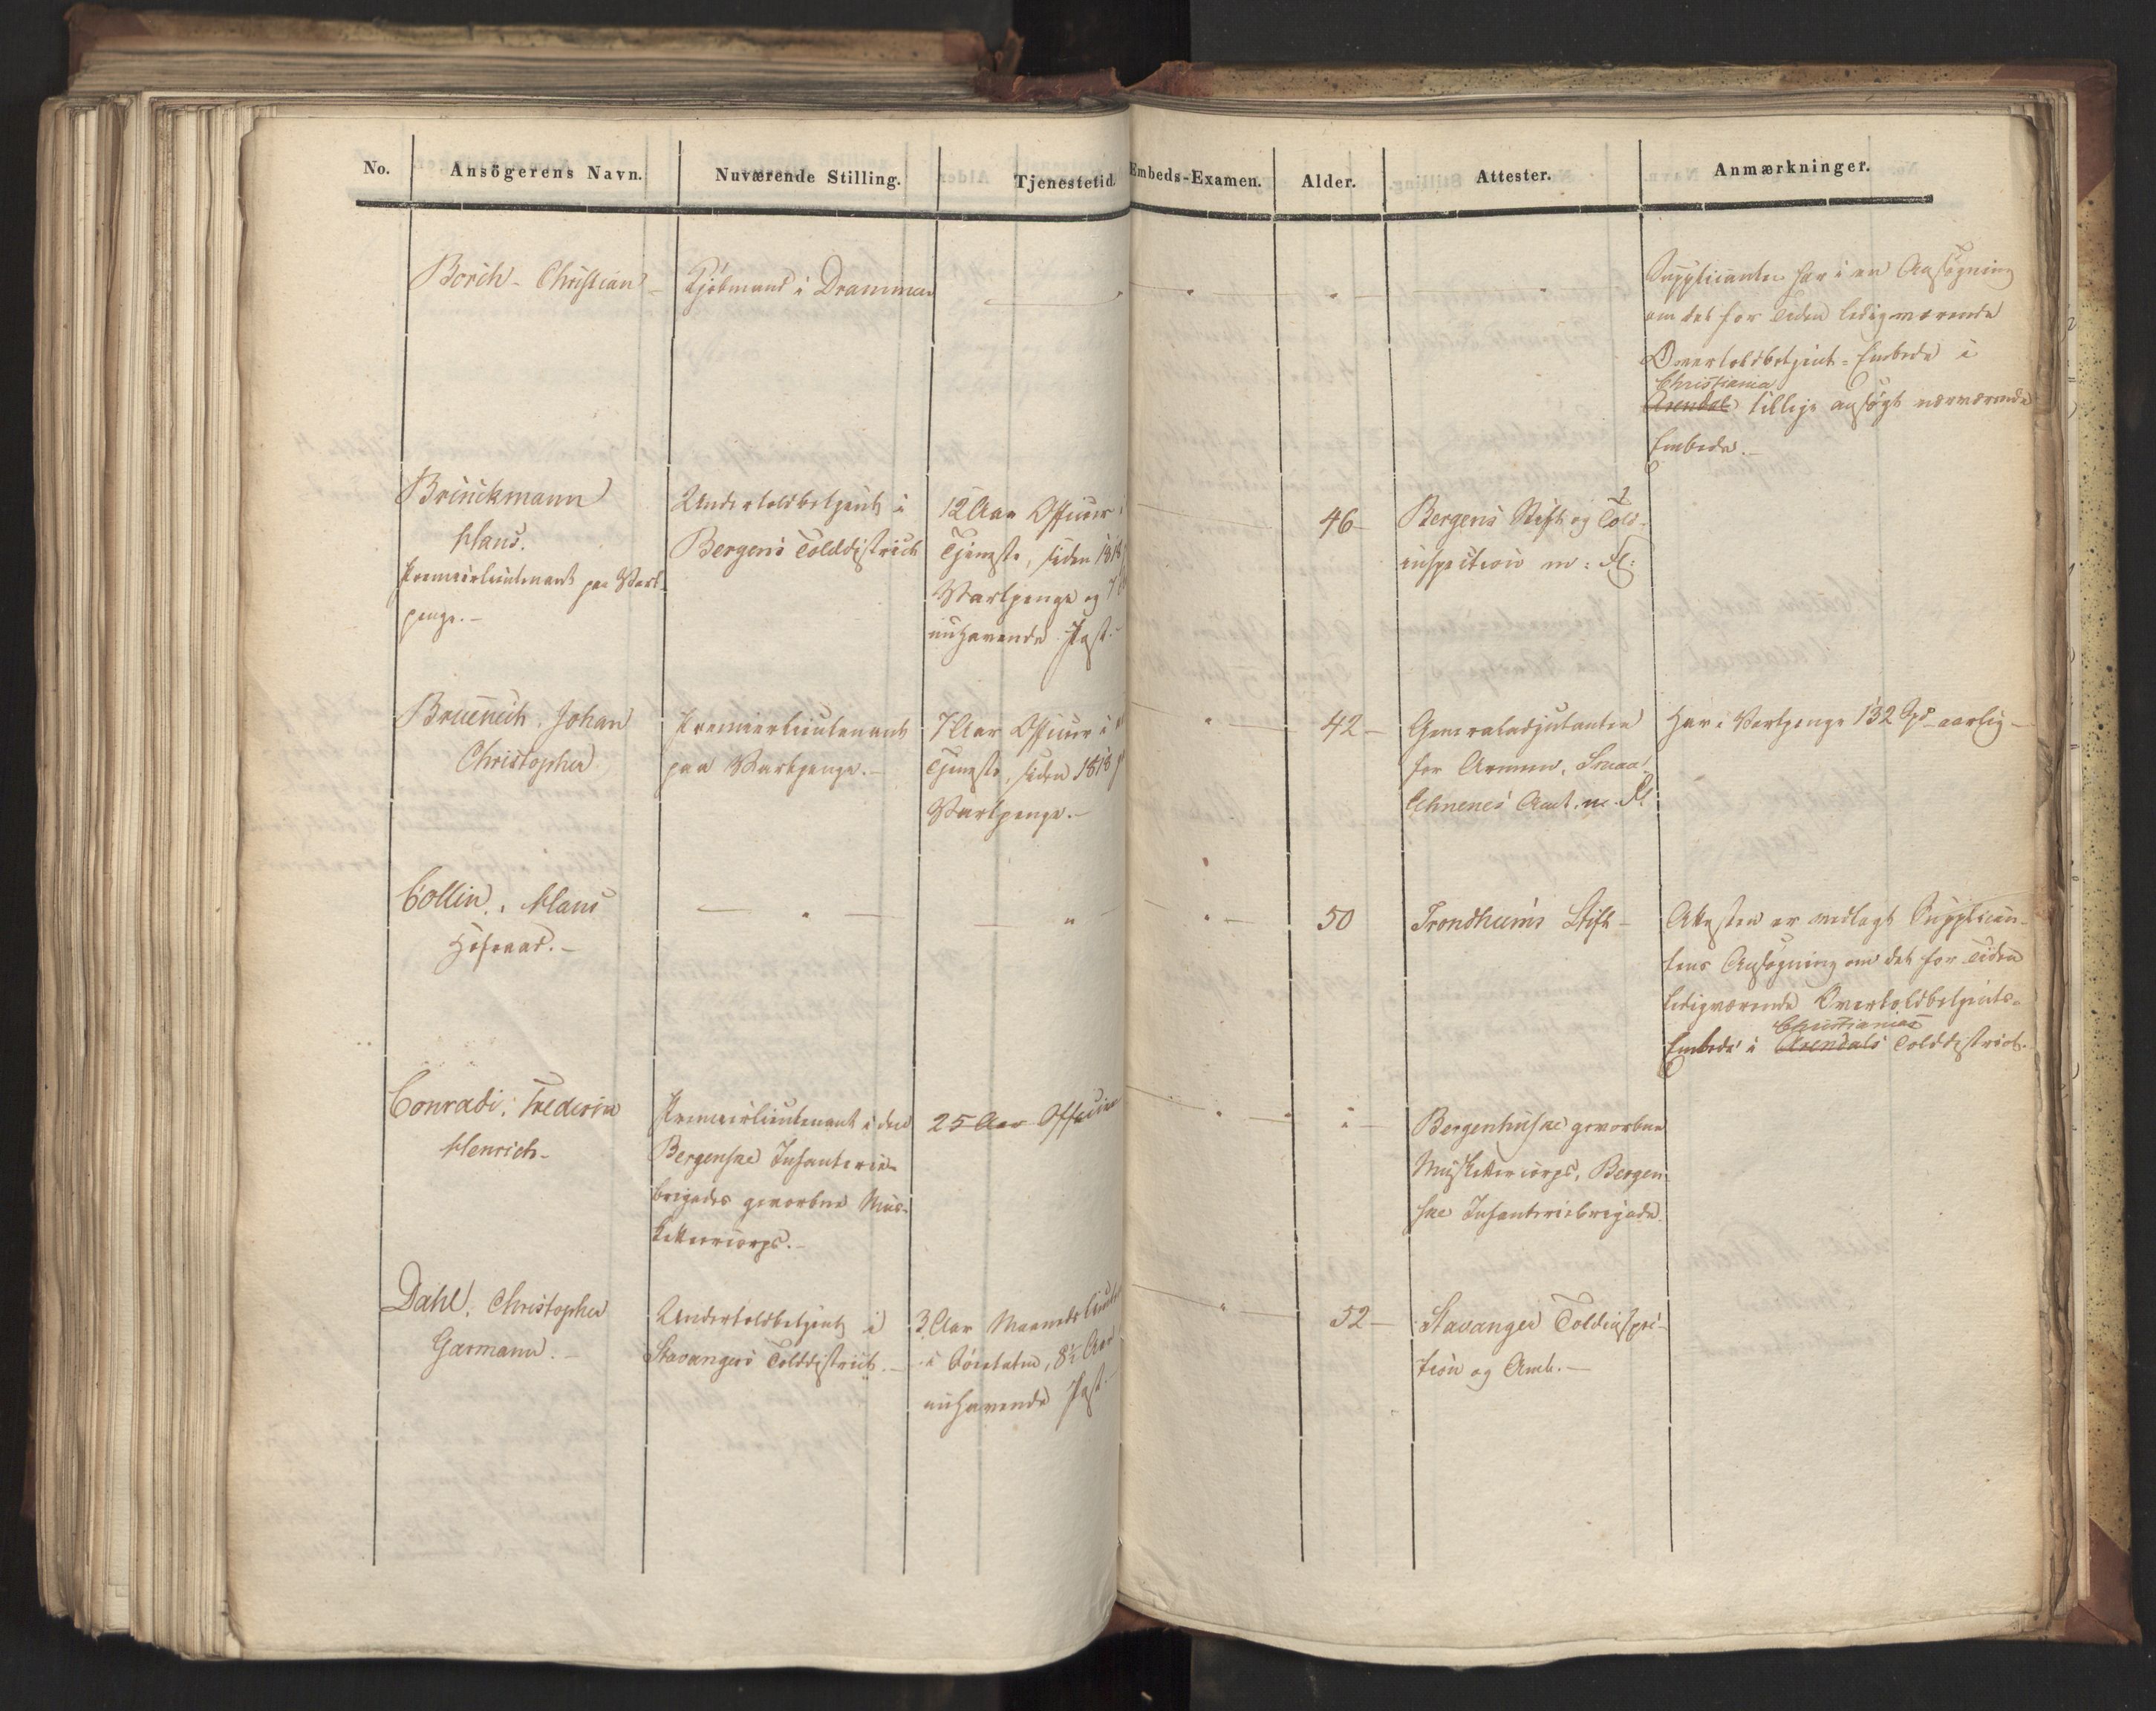 No. Ansögerens Navn. Nuværende Stilling. Tjenestetid. Embeds-Examen. Alder. Attester. Anmærkninger.
Borch - Christian - Kjøbmand i Drammen
Supplicanten har i en Ansøgning
om det for Tiden ledigværende
Overtoldbetjent-Embede i
Christiania
Arendal tillige ansøgt nærværende
Embede.-
Brinckmann
Hans.
Premierlieutenant paa Vart-
penge.-
Undertoldbetjent i
Bergens Tolddistrict
12 Aar Officier i
Tjeneste, siden 1818
Vartpenge og 7
nuhavende Post.-
46-
Bergens Stift og Told-
inspection m: Fl:
Bruenech, Johan
Christopher
Premierlieutenant
paa Vartpenge.-
7 Aar Officier i
Tjeneste, siden 1818
Vartpenge.-
42-
Generaladjutanten
for Armeen, Smaa-
lehnenes Amt. m. Fl.
Har i Vartpenge 132 Spd aarlig-
Collin, Hans
Hofraad.-
50
Trondhiems Stift-
Attesten er vedlagt Supplican-
tens Ansøgning om det for Tiden
ledigværende Overtoldbetjents-
Christianias
Embede i Arendals Tolddistrict.
Conradi, Frederik
Henrich-
Premierlieutenant i den
Bergenske Infanterie-
brigades gevorbne Mus-
ketteercorps.-
25 Aar Officier
Bergenhuske gevorbne
Musketteercorps, Bergen-
ske Infanteriebrigade.
Dahl, Christopher
Garmann.-
Undertoldbetjent i
Stavangers Tolddistrict.-
3 Aar Maanedslieut
i Søetaten, 8½ Aar
nuhavende Post.-
52-
Stavanger Toldinspec-
tion og Amt.-